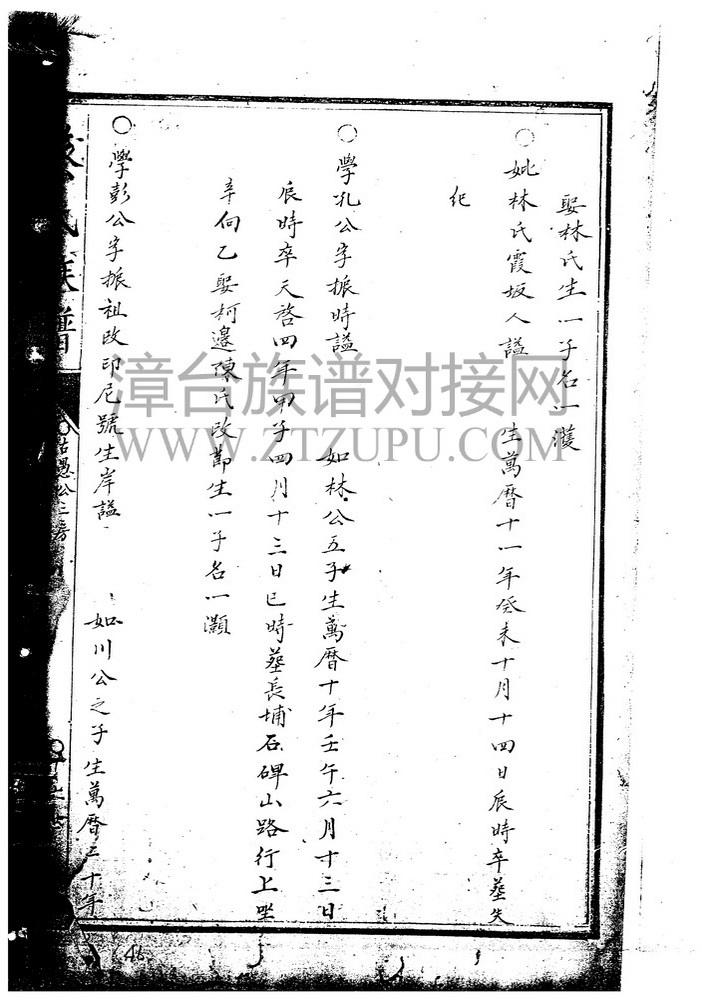 娶林氏生一子名一濩
○妣林氏霞坂人諡 生萬曆十一年癸未十月十四日辰時卒葬失
紀
○學孔公字振時諡 如林公五子生萬曆十年壬午六月十三日
辰時卒天啓四年甲子四月十三日巳時葬長埔石碑山路行上坐
辛向乙娶柯邊陳氏改節生一子名一灝
○學彭公字振祖改印尼號生岸諡 如川公之子生萬曆三十年
氏族譜
愚公三房
46
漳台族谱对接网
WWW.ZTZUPU.COM